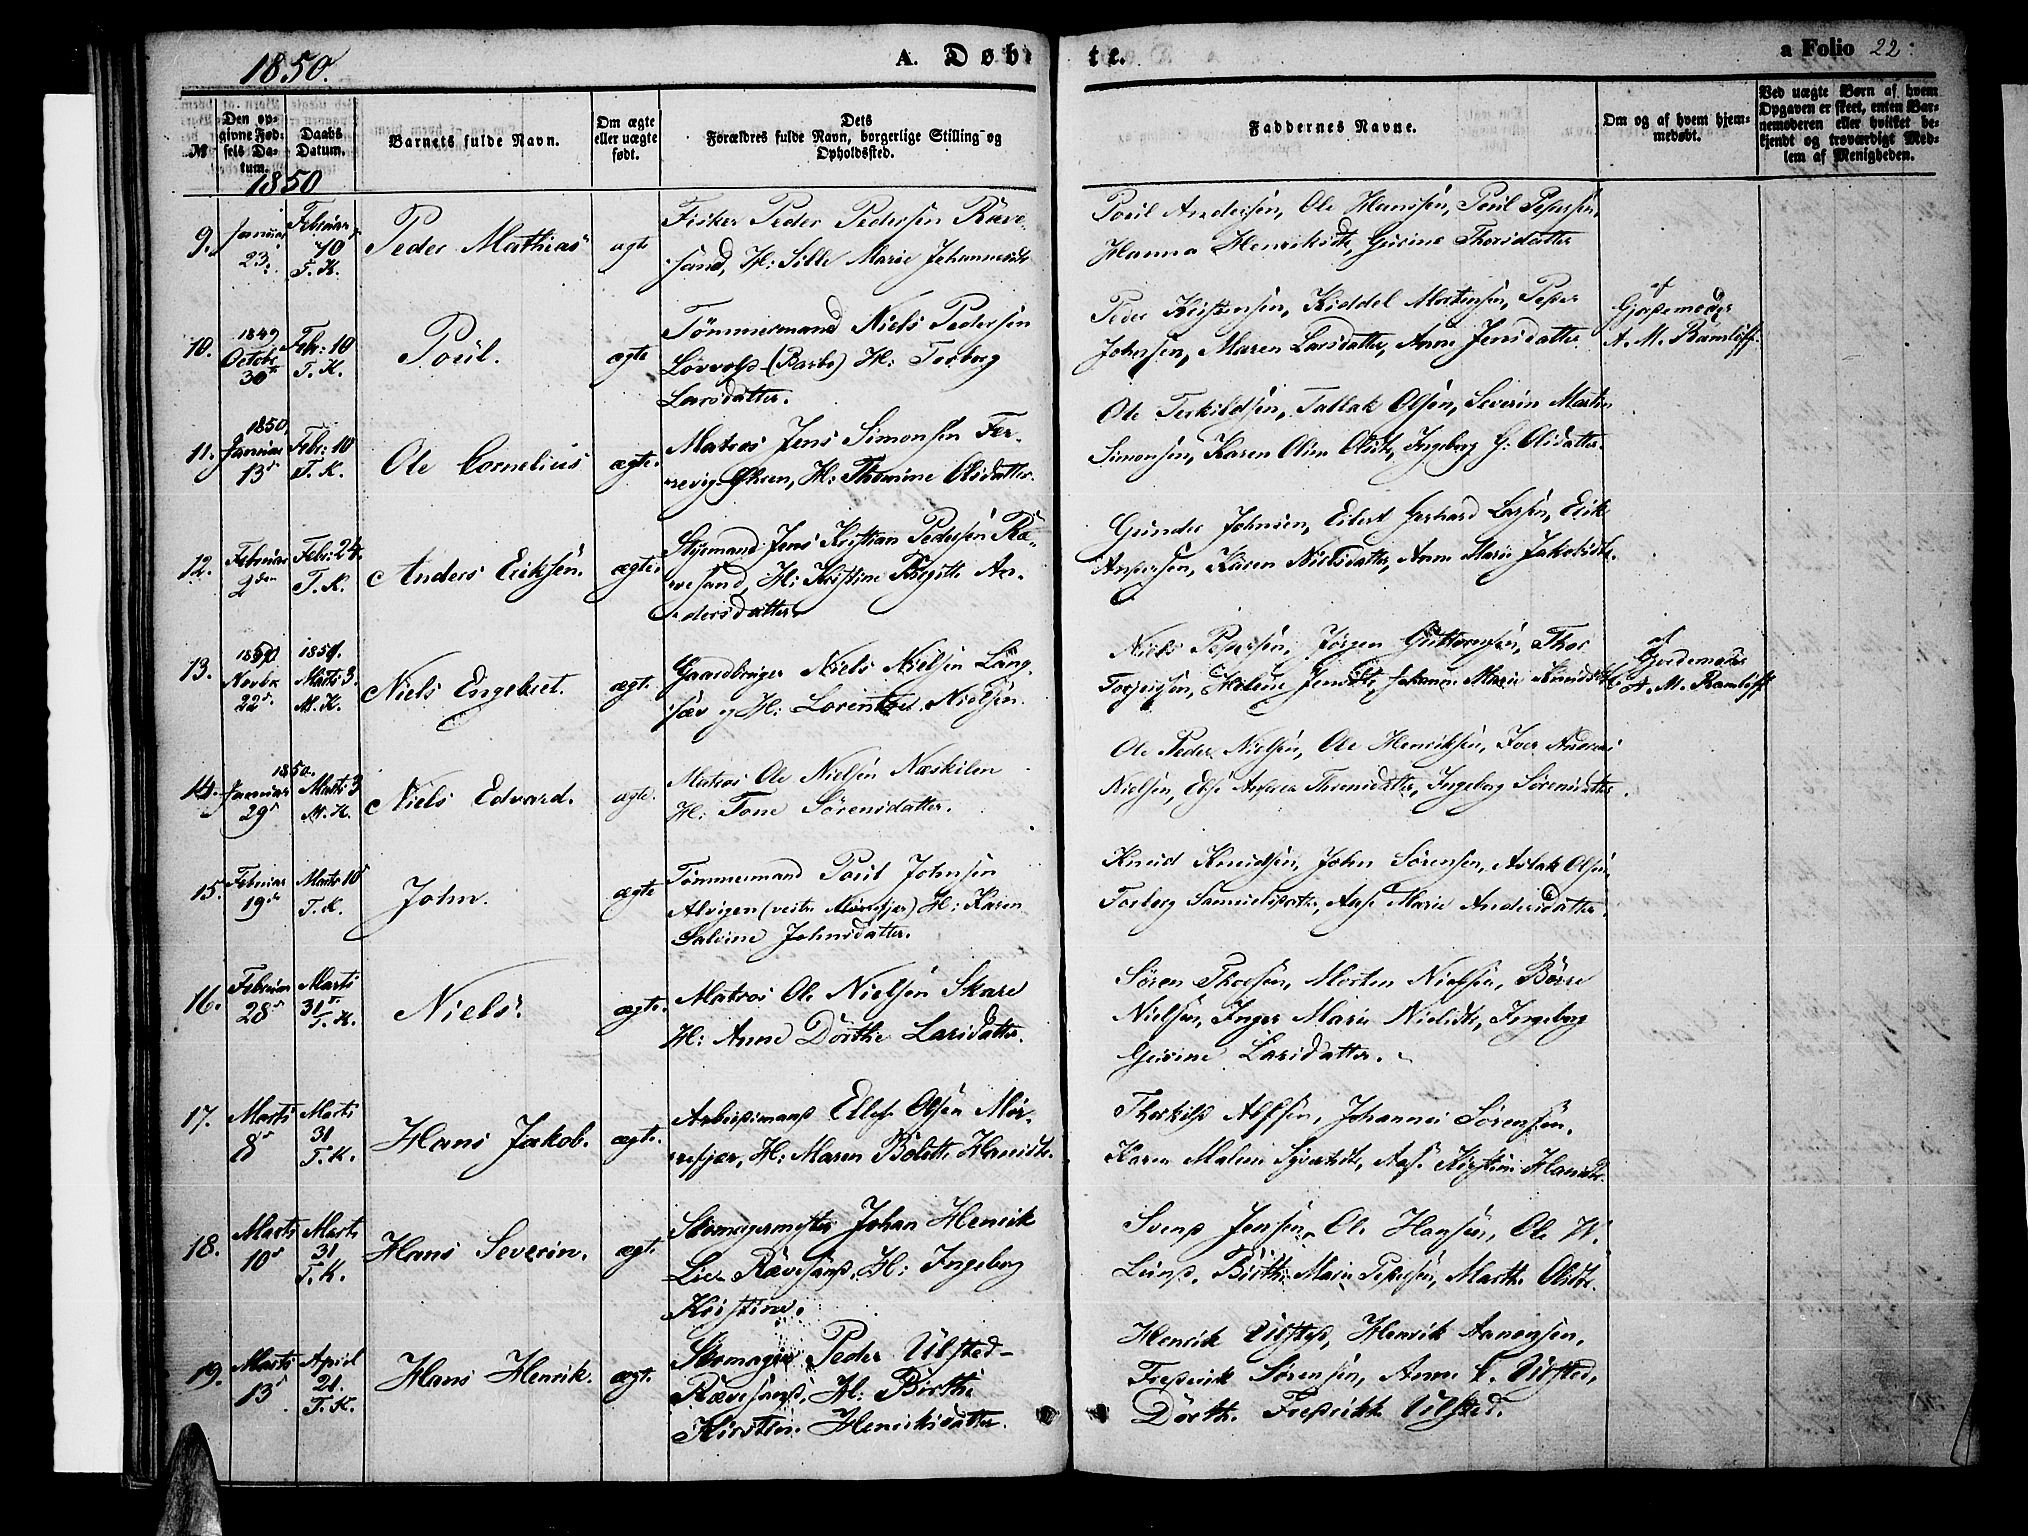 1850.
A. Døbte.
a Folio 22.
№
Den op-
givne Fød-
sels Da-
tum.
Daabs
Datum.
Barnets fulde Navn.
Om ægte
eller uægte
født.
Dets
Forældres fulde Navn, borgerlige Stilling og
Opholdssted.
Faddernes Navne.
Om og af hvem hjem-
medøbt.
Ved uægte Børn af hvem
Opgaven er skeet, enten Bar-
nemoderen eller hvilket be-
kjendt og troværdigt Med-
lem af Menigheden.
1850
9.
Januar
23.
Februar
10
T. K.
Peder Mathias
ægte
Fisker Peder Pedersen Ræve-
sand, H: Sille Marie Johannesdt
Poul Andersen, Ole Hansen, Poul Pedersen,
Hanna Henriksdt, Gurine Thorsdatter
10.
1849
Octobr
30
Febr: 10
T. K.
Poul.
ægte
Tømmermand Niels Pedersen
Løvvold (Barbo) H: Torborg
Larsdatter.
Peder Kristensen, Kiddel Mortensen, Peder
Johnsen, Maren Larsdatter, Anne Jensdatter
af
Gjordemoder
A. M. Ramløff.
11.
1850.
Januar
13
Febr: 10
T. K.
Ole Cornelius
ægte.
Matros Jens Simonsen Fer-
revig H: Thomine Olsdatter.
Ole Terkildsen, Tallak Olsen, Severin Martin
Simonsen, Karen Oline Olsdt, Ingeborg G. Olsdatter.
12.
Februar
2den
Febr: 24.
T. K.
Anders Eriksen.
ægte.
Styrmand Jens Kristian Pedersen Ræ-
vesand, H: Kristine Birgitte An-
dersdatter
Gunder Johnsen, Eilert Gerhard Larsen, Erik
Andersen, Karen Nielsdatter, Anne Marie Jakobsdt.
13.
Novbr
22
Marts 3.
M. K.
Niels Engebret.
ægt.
Gaardbruger Niels Nielsen Lang-
sæv og H: Nielsen.
Niels Pedersen, Jørgen Guttormsen, Thor
Torjersen, Helene Jensdt, Johanne Marie Knudsdt
af
Gjordemoder
A. M. Ramløff
14.
1850.
Januar
29
Marts 3
M. K.
Niels Edvard.
ægte.
Matros Ole Nielsen Næskilen
H: Tone Sørensdatter.
Ole Peder Nielsen, Ole Henriksen, Iver Andreas
Nielsen, Else Andrea Thomsdatter, Ingeborg Sørensdatter.
15.
Februar
19
Marts 10
T. K.
John.
ægte
Tømmermand Poul Johnsen
Alvigen (vestre Mørefjer) H: Karen
Salvine Johnsdatter.
Knud Knudsen, John Sørensen, Aslak Olsen,
Torborg Samuelsdatter, Aase Marie Andersdatter.
16.
Februar
28
Marts
31
T. K.
Niels.
ægte.
Matros Ole Nielsen Skare
H: Anne Dorthe Larsdatter.
Søren Thorsen, Morten Nielsen, Børre
Nielsen, Inger Marie Nielsdt, Ingeborg
Gurine Larsdatter.
17.
Marts
8
Marts
31
T. K.
Hans Jakob.
ægte.
Arbeidsmand Ellef Olsen Mør-
refjær, H: Maren Bolette Hansdt.
Thorkild Alfsen, Johannes Sørensen,
Karen Malene Syvertsdt, Aase Kirstine Hansdt.
18.
Marts
10
Marts
31
T. K.
Hans Severin.
ægt.
Skomagermester Johan Henrik
Lie Rævesand, H: Ingeborg
Kristine.
Svend Jensen, Ole Hansen, Ole W.
Lund, Birthe Marie Pedersen, Marthe Olsdt.
19.
Marts
13
April
21.
T. K.
Hans Henrik.
ægt.
Skomager Peder Ulsted-
Rævesand, H: Birthe
Kirstine Henriksdatter.
Henrik Ulsted, Henrik Aanonsen,
Frederik Sørensen, Anne C. Ulsted,
Dorthe Fredrikke Ulsted.